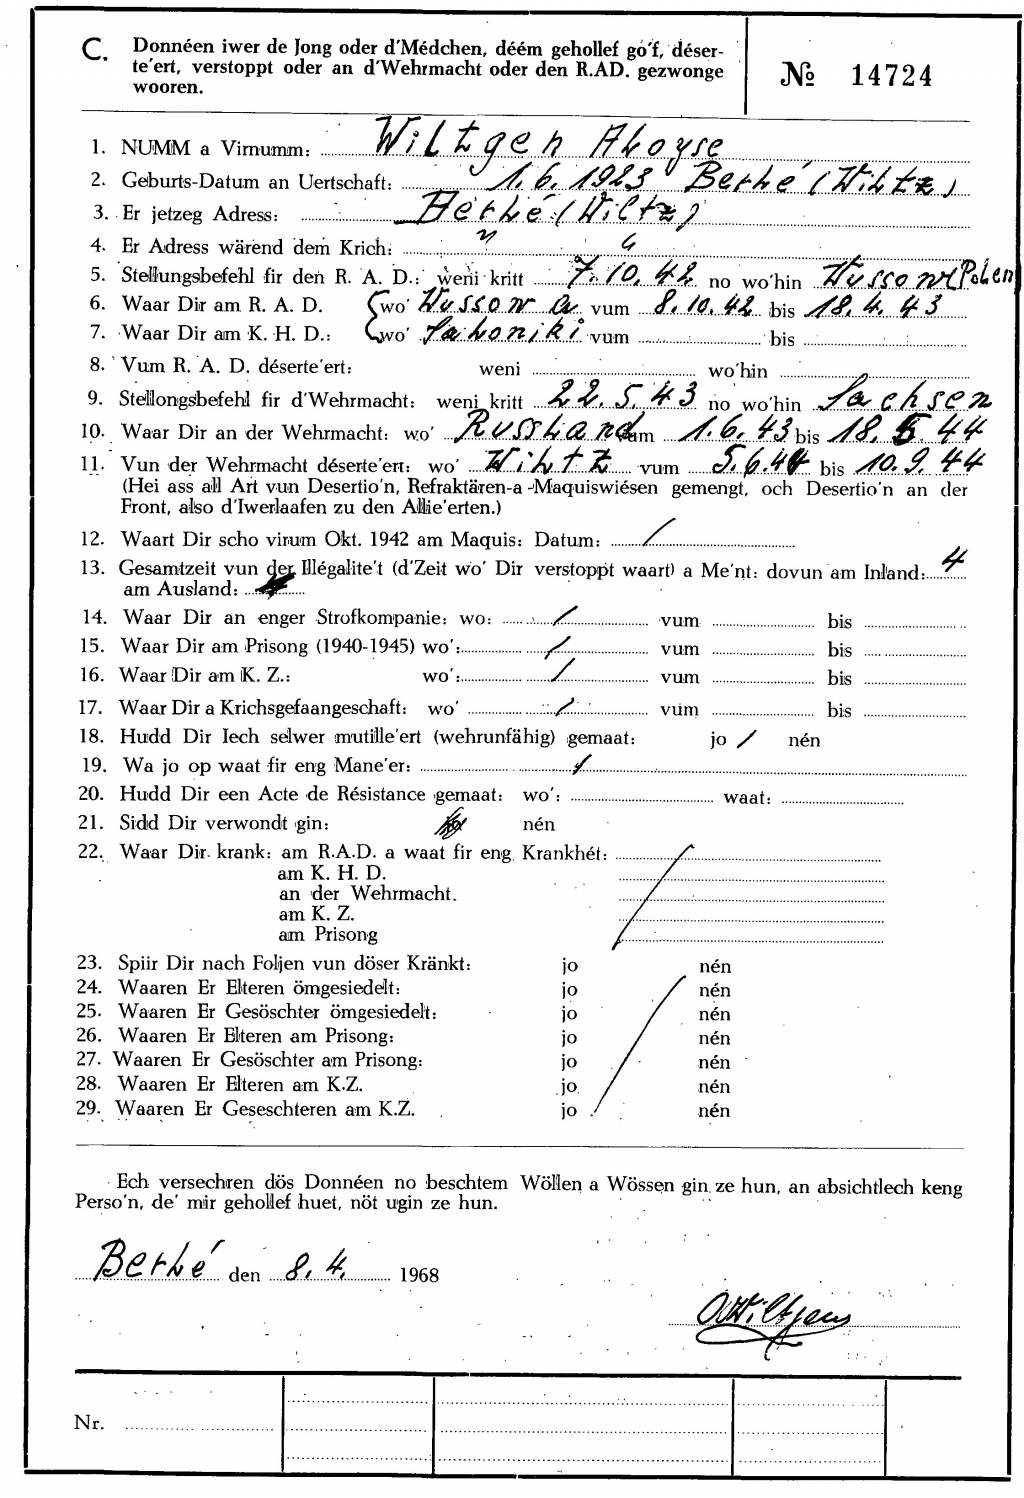 C. Donnéen iwer de Jong oder d'Médchen, déém gehollef go'f, déser-
te'ert, verstoppt oder an d'Wehrmacht oder den R.AD. gezwonge
wooren.
№ 14724
1. NUMM a Virnumm: Wiltgen Aloyse
2. Geburts-Datum an Uertschaft: 1.6.1923 Berlé (Wiltz)
3. Er jetzeg Adress: Berlé (Wiltz)
4. Er Adress wärend dem Krich: " "
5. Stellungsbefehl fir den R. A. D.: weni kritt 7.10.42 no wo'hin Wussow (Polen
6. Waar Dir am R. A. D. (wo' Wussow vum 8.10.42 bis 18.4.43
7. Waar Dir am K. H. D.: (wo' Saloniki vum bis
8. Vum R. A. D. déserte'ert: weni wo'hin
9. Stellongsbefehl fir d'Wehrmacht: weni kritt 22.5.43 no wo'hin Sachsen
10. Waar Dir an der Wehrmacht: wo' Russland vum 1.6.43 bis 18.5.44
11. Vun der Wehrmacht déserte'ert: wo' Wiltz vum 5.6.44 bis 10.9.44
(Hei ass all Art vun Desertio'n, Refraktären-a -Maquiswiésen gemengt, och Desertio'n an der
Front, also d'Iwerlaafen zu den Allie'erten.)
12. Waart Dir scho virum Okt. 1942 am Maquis: Datum: /
13. Gesamtzeit vun der Illégalite't (d'Zeit wo' Dir verstoppt waart) a Me'nt: dovun am Inland: 4
am Ausland:
14. Waar Dir an enger Strofkompanie: wo: / vum bis
15. Waar Dir am Prisong (1940-1945) wo': / vum bis
16. Waar Dir am K. Z.: wo': / vum bis
17. Waar Dir a Krichsgefaangeschaft: wo' / vum bis
18. Hudd Dir Iech selwer mutille'ert (wehrunfähig) gemaat: jo / nén
19. Wa jo op waat fir eng Mane'er: /
20. Hudd Dir een Acte de Résistance gemaat: wo': waat:
21. Sidd Dir verwondt gin: nén
22. Waar Dir krank: am R.A.D. a waat fir eng Krankhét:
am K. H. D.
an der Wehrmacht.
am K. Z.
am Prisong
23. Spiir Dir nach Foljen vun döser Kränkt: jo nén
24. Waaren Er Elteren ömgesiedelt: jo nén
25. Waaren Er Gesöschter ömgesiedelt: jo nén
26. Waaren Er Elteren am Prisong: jo nén
27. Waaren Er Gesöschter am Prisong: jo nén
28. Waaren Er Elteren am K.Z. jo nén
29. Waaren Er Geseschteren am K.Z. jo nén
Ech versechren dös Donnéen no beschtem Wöllen a Wössen gin ze hun, an absichtlech keng
Perso'n, de' mir gehollef huet, nöt ugin ze hun.
Berlé den 8.4. 1968
A Wiltgen
Nr.